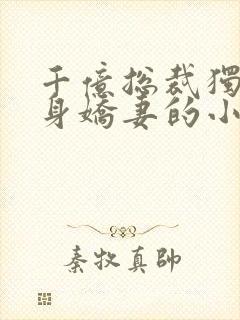 千億総裁獨
身嬌妻的小
秦牧真帥